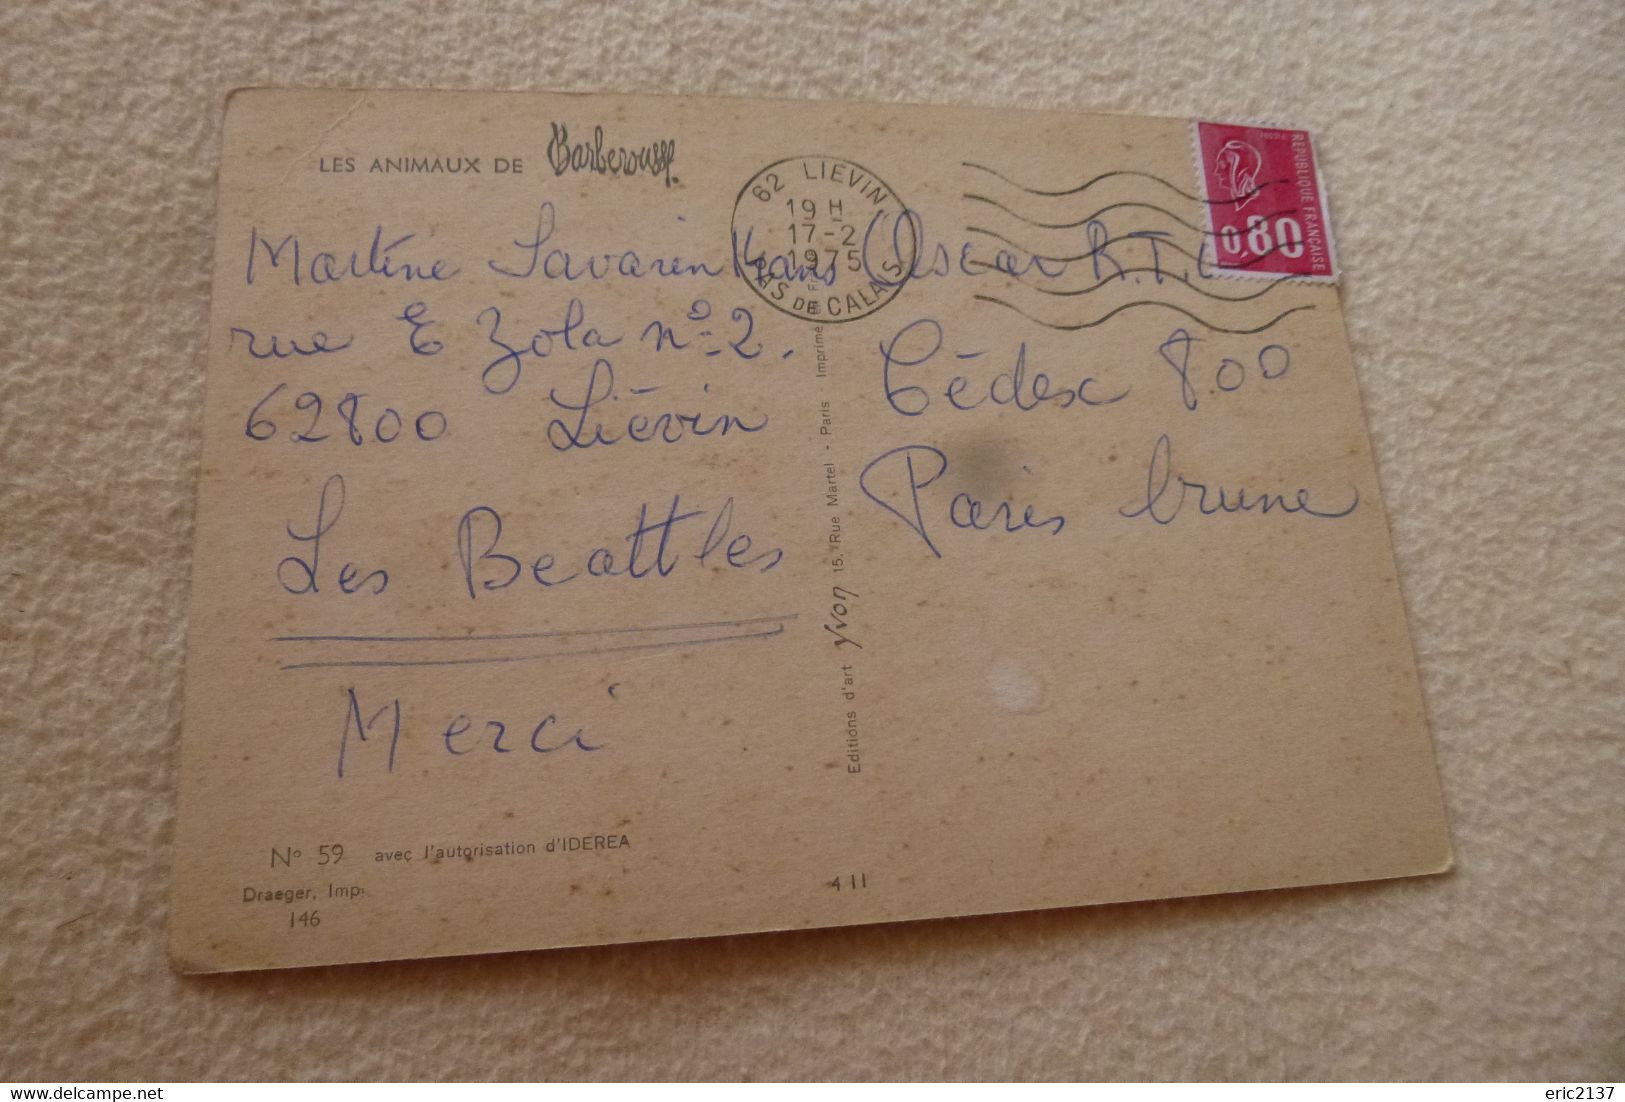 LES ANIMAUX DE Barberousse
62 LIEVIN
19 H
17-2
1975
PAS DE CALAIS
REPUBLIQUE FRANCAISE
0,80
Martine Savarin 14 ans
rue E Zola nº 2.
62800 Liévin
Les Beattles
Merci
Oscar R.T.L
Cédex 800
Paris brune
Editions d'art yvon 15, Rue Martel - Paris Imprimé en Fr
Nº 59 avec l'autorisation d'IDEREA
Draeger, Imp.
146
4 11
eric2137